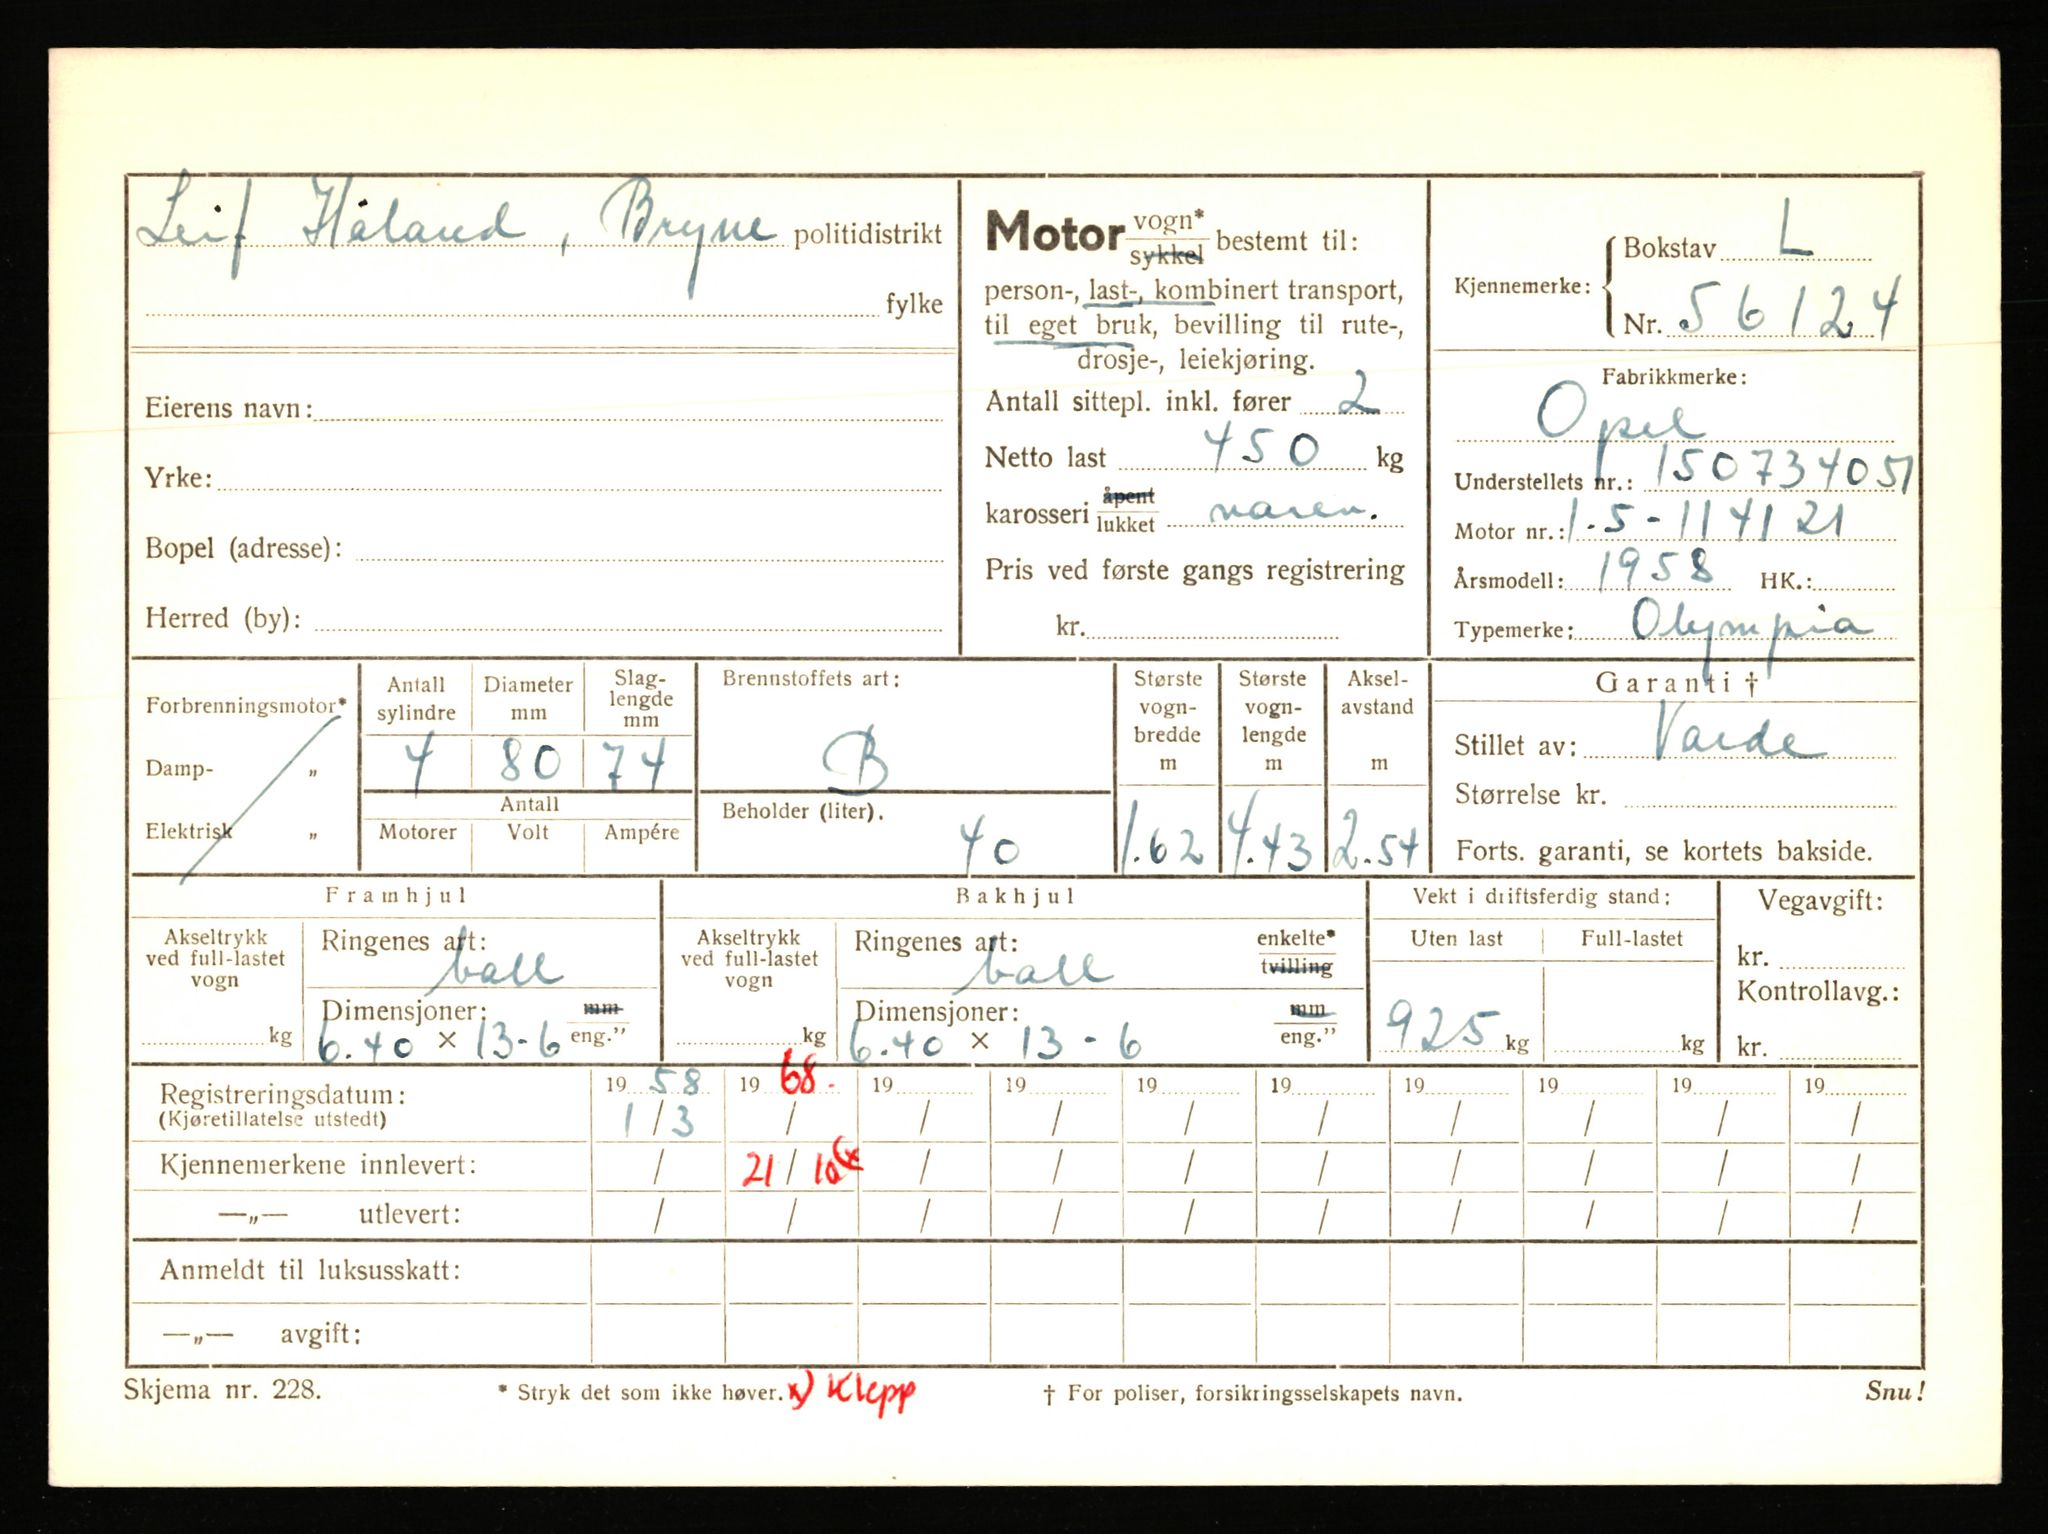 Leif Håland, Bryne politidistrikt
fylke
Eierens navn:
Yrke:
Bopel (adresse):
Herred (by):
Motor vogn* sykkel bestemt til:
person-, last-, kombinert transport,
til eget bruk, bevilling til rute-,
drosje-, leiekjøring.
Antall sittepl. inkl. fører 2
Netto last 450 kg
karosseri åpent lukket varev.
Pris ved første gangs registrering
kr.
Kjennemerke: Bokstav L
Nr. 56124
Fabrikkmerke:
Opel
Understellets nr.: 150734051
Motor nr.: 1.5-114121
Årsmodell: 1958 HK.:
Typemerke: Olympia
Forbrenningsmotor*
Damp- „
Elektrisk „
Antall sylindre
Diameter mm
Slag-lengde mm
4 80 74
Antall
Motorer Volt Ampére
Brennstoffets art:
B
Beholder (liter).
40
Største vogn-bredde m
1.62
Største vogn-lengde m
4.43
Aksel-avstand m
2.54
Garanti †
Stillet av: Varde
Størrelse kr.
Forts. garanti, se kortets bakside.
Framhjul
Akseltrykk ved full-lastet vogn
kg
Ringenes art:
ball
Dimensjoner: mm
6.40 × 13-6 eng.”
Bakhjul
Akseltrykk ved full-lastet vogn
kg
Ringenes art: enkelte*
ball tvilling
Dimensjoner: mm
6.40 × 13-6 eng.”
Vekt i driftsferdig stand:
Uten last Full-lastet
925 kg kg
Vegavgift:
kr.
Kontrollavg.:
kr.
Registreringsdatum: 19 58 19 68. 19 19 19 19 19 19 19 19
(Kjøretillatelse utstedt) 1/3 / / / / / / / / /
Kjennemerkene innlevert: / 21/10 (x / / / / / / / /
—„— utlevert: / / / / / / / / / /
Anmeldt til luksusskatt:
—„— avgift:
Skjema nr. 228. * Stryk det som ikke høver. x) Klepp † For poliser, forsikringsselskapets navn. Snu!